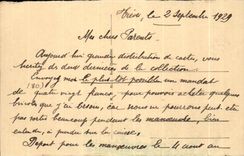 Trèves, le 2 Septembre 1929
Mes chers Parents
Aujourd'hui grande distribution de cartes, vous
les deux dernières de la collection.
Envoyez moi le plus tôt possible un mandat
(80f)
de quatre vingt francs, pour pouvoir acheter quelques
que j'ai besoin, car nous ne pourrons peut être
pas sortir beaucoup pendant les manœuvres, bien
entendu, à prendre sur la caisse.
Départ pour les manœuvres le 4 au